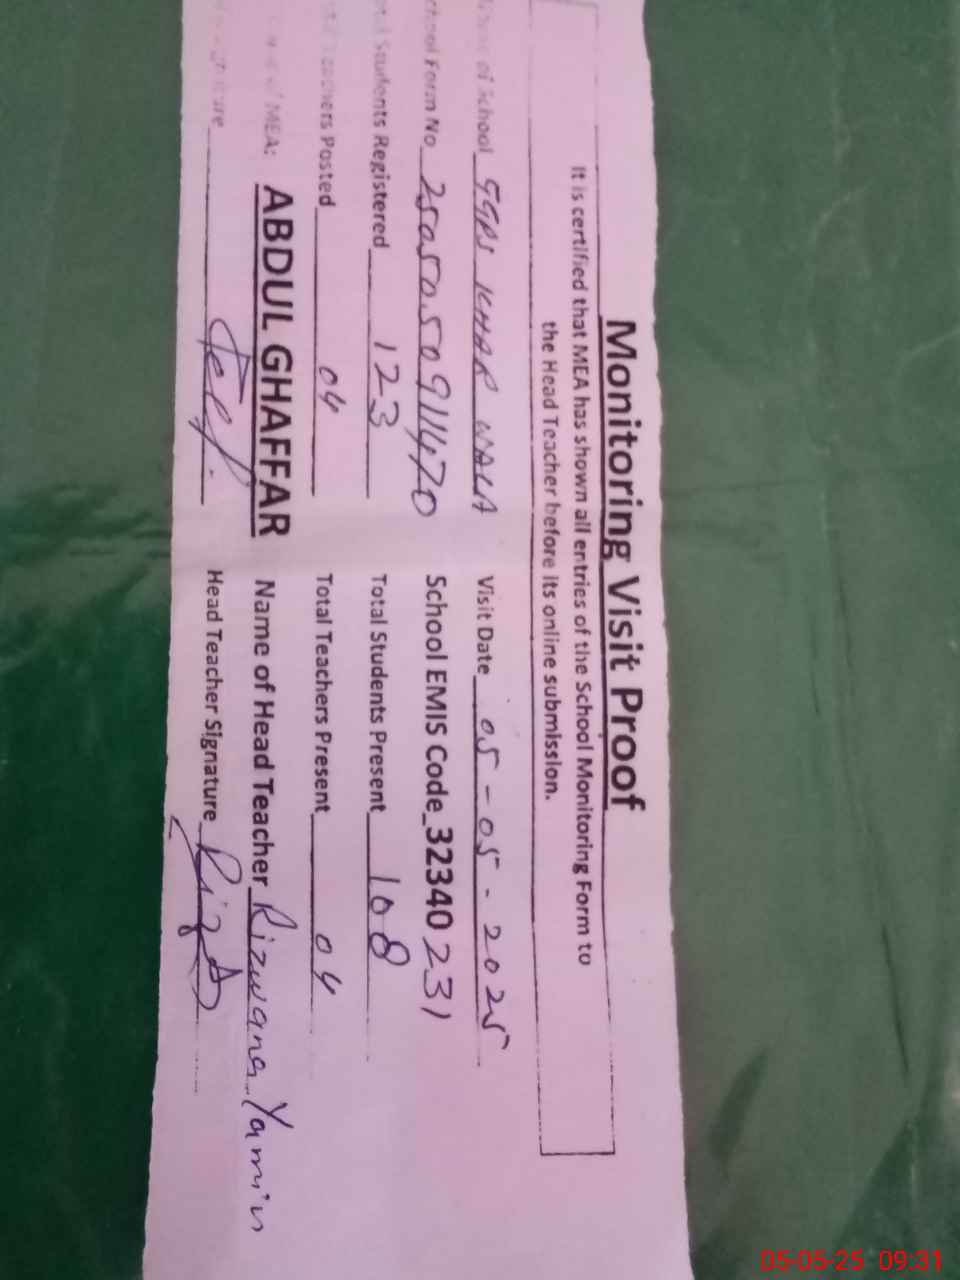 Monitoring Visit Proof
It is certified that MEA has shown all entries of the School Monitoring Form to
the Head Teacher before its online submission.
Name of School GGPS KHAR WALA Visit Date 05-05-2025
School Form No 2505050911470 School EMIS Code 32340231
Total Students Registered 123 Total Students Present 108
Total Teachers Posted 04 Total Teachers Present 04
Name of MEA: ABDUL GHAFFAR Name of Head Teacher Rizwana Yamin
Signature Head Teacher Signature
05-05-25 09:31